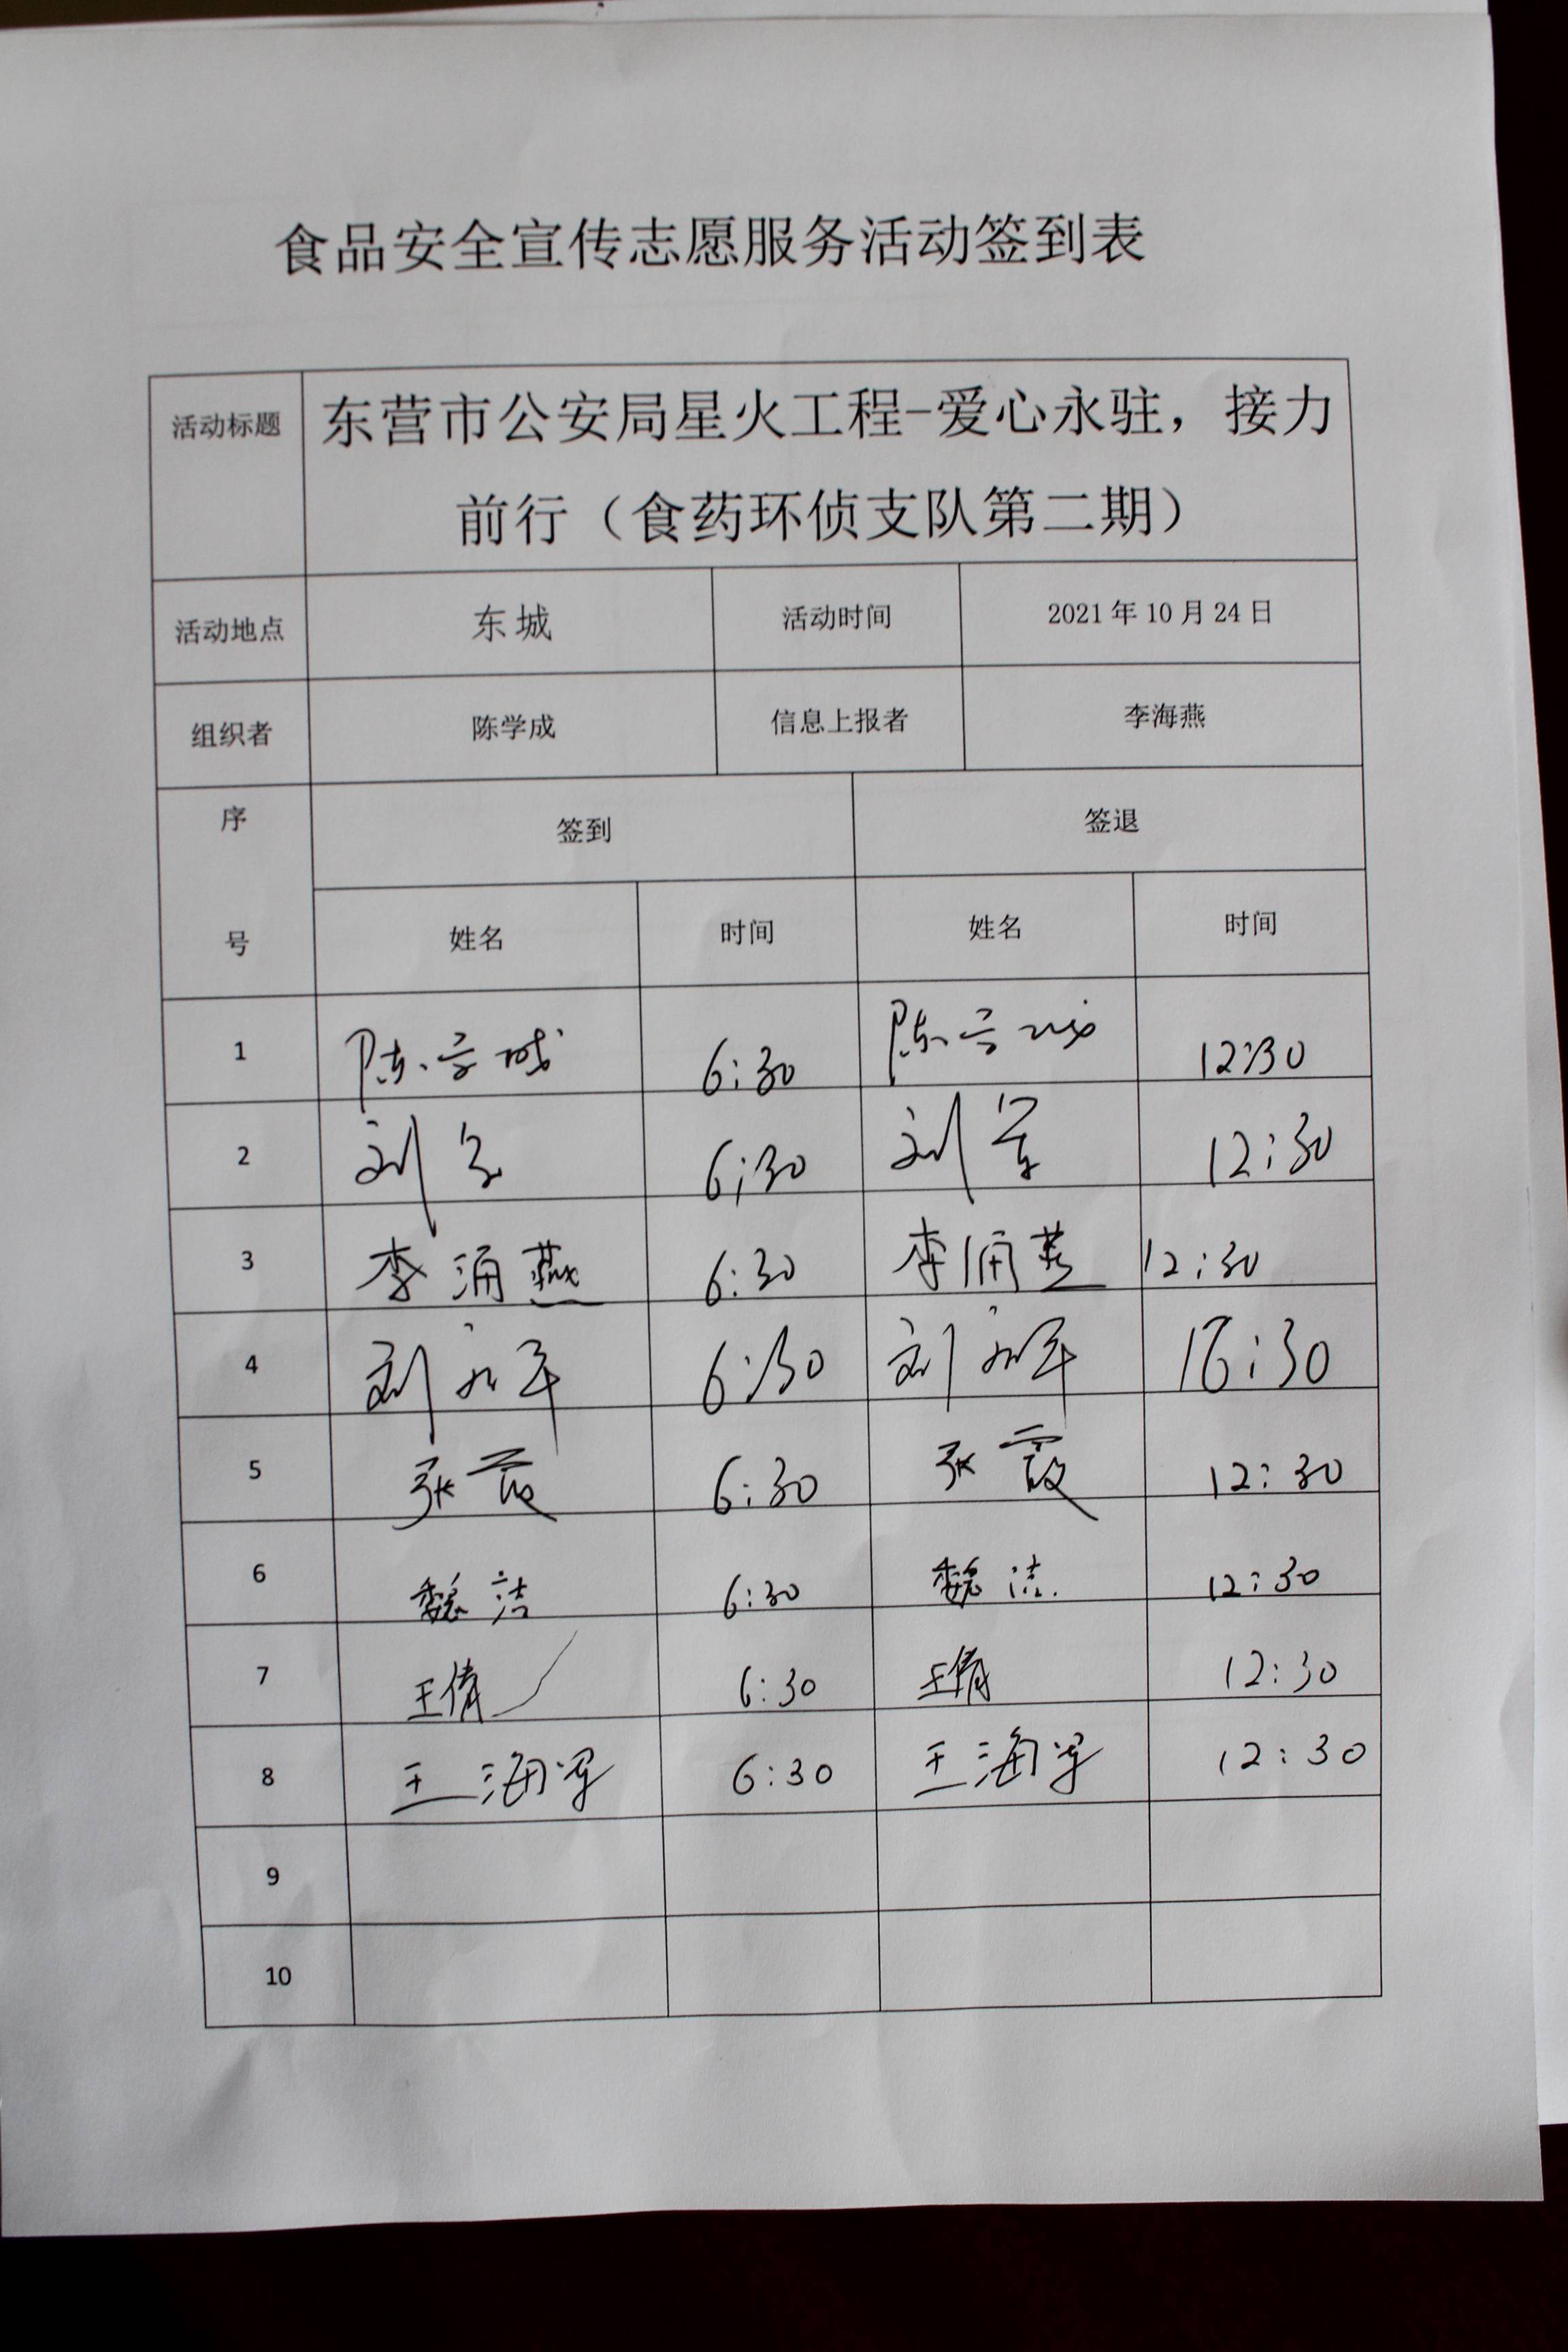 食品安全宣传志愿服务活动签到表
活动标题
东营市公安局星火工程-爱心永驻，接力
前行（食药环侦支队第二期）
活动地点 东城 活动时间 2021年10月24日
组织者 陈学成 信息上报者 李海燕
序号 签到 签退
姓名 时间 姓名 时间
1 陈学城 6:30 陈学城 12:30
2 刘 6:30 刘军 12:30
3 李涌燕 6:30 李涌燕 12:30
4 刘永军 6:30 刘永军 16:30
5 张霞 6:30 张霞 12:30
6 魏洁 6:30 魏洁 12:30
7 王倩 6:30 王倩 12:30
8 王海军 6:30 王海军 12:30
9
10